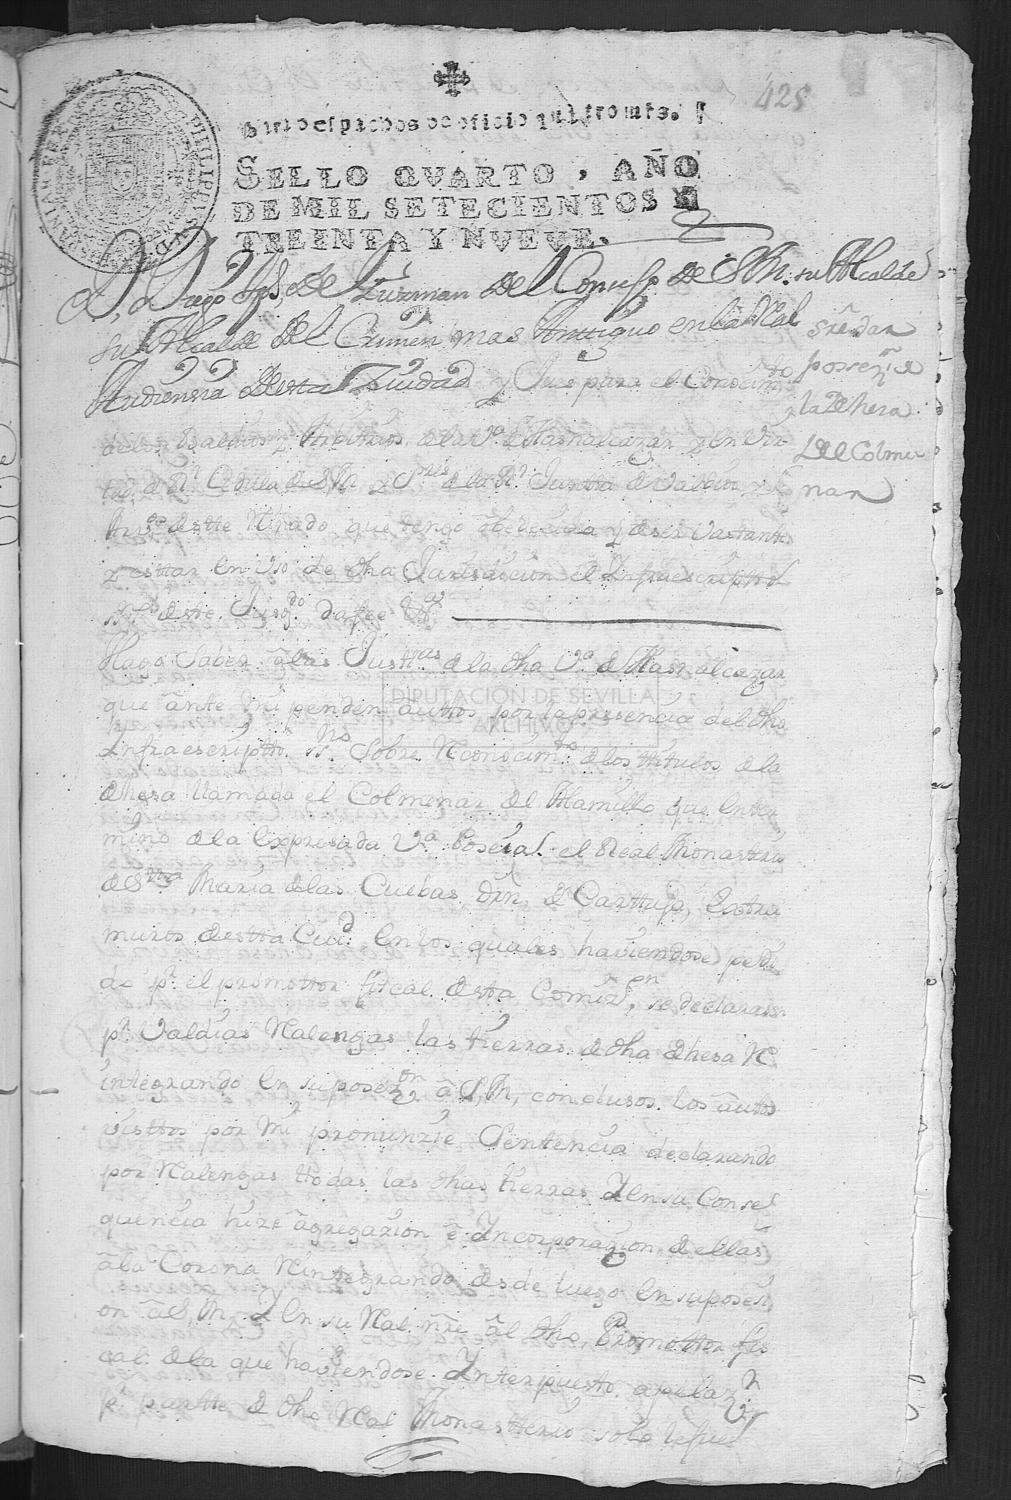 425
Para despachos de oficio quatro mrs.
SELLO QVARTO, AÑO
DE MIL SETECIENTOS Y
TREINTA Y NVEVE.
PHILIPPUS V D
D. Diego de Guzman del Consejo de S M. su Alcalde
su Alcalde del Crimen mas Antiguo en la Real
Audiensia desta Ziudad y Jues para el Conosim.to
de los Baldios y Arbitrios de la V.a de Hasnalcazar y en Vir
tud de R.l Cedula de S M y S.res de la R.l Junta de Valdios y
Arv.os deste Reynado que tengo obedecida y de ser Vastante
y esttar en Vso de dha Jurisdicion el Infraescriptto
ss.no deste Jusg.do da fee
sre dar
posse.n de
la Dehesa
del Colme
nar
Hago Saber a las Justi.as de la dha V.a de Hasnalcazar
que ante mi penden auttos por la presencia del dho
Infraescriptto ss.no Sobre Reconosim.to de los titulos de la
dhesa llamada el Colmenar del Alamillo que en ter
mino de la Expresada V.a Poseia el Real Monastrio
de S.tta Maria de las Cuebas, orn. de Carttuja, Extra
muros destta Ciu.d En los quales haviendose pedi
do p.r el promottor fiscal desta Comiz.on se declarasen
p.r Valdias Realengas las tierras de dha dhesa Re
integrando en su posez.on a S, M, conclusos los autos
visttos por Mi pronunzie Sentencia declarando
por Realengas ttodas las dhas tierras Y en su Conse
quencia hize agregazion e Yncorporazion de ellas
a la Corona Reintegrando desde luego En su posesi
on a S, M. y En su Real nre al dho Promottor fis
cal de la que haviendose Ynterpuesto apelaz.n
p.r partte de dho Real Monastterio solo le fue
DIPUTACIÓN DE SEVILLA
ARCHIVO